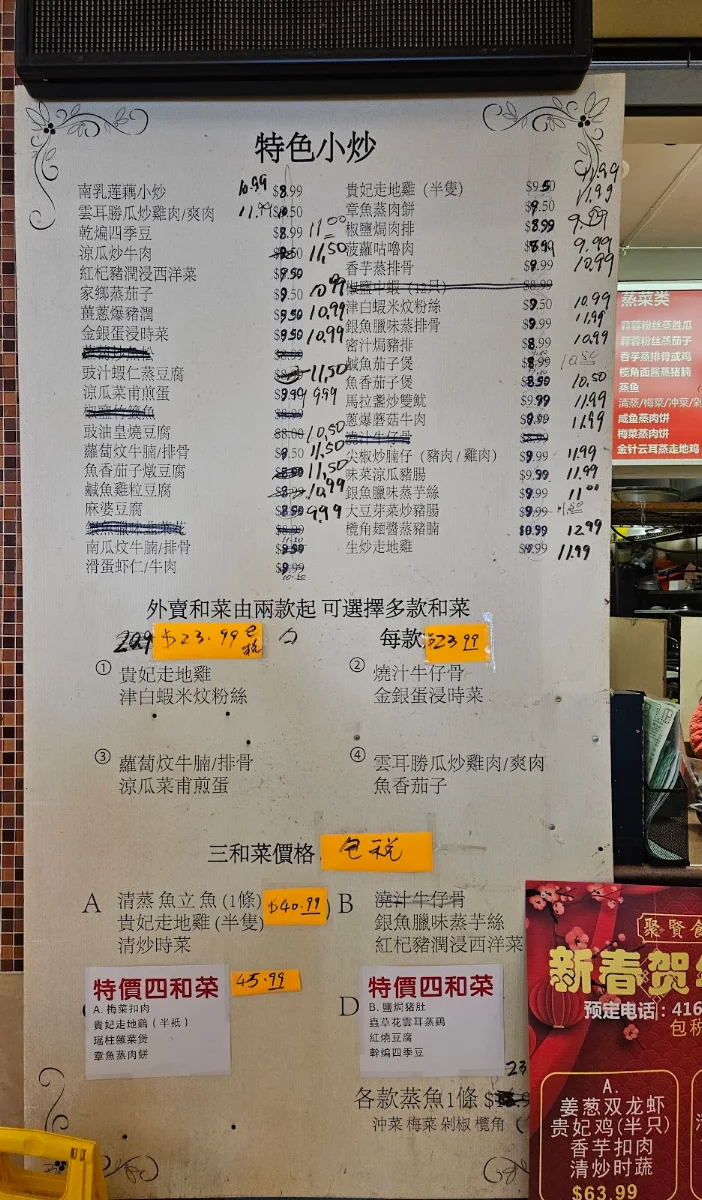 特色小炒
南乳莲藕小炒 10.99 $8.99
雲耳勝瓜炒雞肉/爽肉 11.99
乾煸四季豆 $8.99 11.00
涼瓜炒牛肉 11,50
紅杞豬潤浸西洋菜 $9.50
家鄉蒸茄子 $9.50 10.99
薑蔥爆豬潤 $9.50 10,99
金銀蛋浸時菜 $9.50 10,99
豉汁蝦仁蒸豆腐 11,50
涼瓜菜甫煎蛋 $9.99
豉油皇燒豆腐 10,50
蘿蔔炆牛腩/排骨 $9.50 11.50
魚香茄子燉豆腐 11,50
鹹魚雞粒豆腐 10,99
麻婆豆腐 $8.50 9.99
南瓜炆牛腩/排骨
滑蛋虾仁/牛肉 $9.99
貴妃走地雞 (半隻) $9.50 11.99
章魚蒸肉餅 $9.50 11.99
椒鹽焗肉排 $8.99
菠蘿咕嚕肉 9.99
香芋蒸排骨 $9.99 10,99
椒鹽中蝦 (12只) $8.99
津白蝦米炆粉絲 $9.50 10,99
銀魚臘味蒸排骨 $9.99 11.99
密汁焗豬排 $8.99 10.99
鹹魚茄子煲 $8.99 10.50
魚香茄子煲 $8.50 10,50
馬拉盞炒雙魷 $9.99 11.99
蔥爆蘑菇牛肉 $8.99 11.99
尖椒炒腩仔 (豬肉 / 雞肉) $9.99 11.99
味菜涼瓜豬腸 $9.50 11.99
銀魚臘味蒸芋絲 $9.99 11.00
大豆芽菜炒豬腸 $9.99
欖角麵醬蒸豬腩 $10.99 12.99
生炒走地雞 $10.99 11.99
外賣和菜由兩款起 可選擇多款和菜
$23.99 包税
每款 $23.99
① 貴妃走地雞
津白蝦米炆粉絲
② 燒汁牛仔骨
金銀蛋浸時菜
③ 蘿蔔炆牛腩/排骨
涼瓜菜甫煎蛋
④ 雲耳勝瓜炒雞肉/爽肉
魚香茄子
三和菜價格 包税
A 清蒸 魚立 魚 (1條) $40.99
貴妃走地雞 (半隻)
清炒時菜
B 澆汁牛仔骨
銀魚臘味蒸芋絲
紅杞豬潤浸西洋菜
特價四和菜 45.99
A. 梅菜扣肉
貴妃走地鷄 (半祗)
瑶柱雜菜煲
章魚蒸肉餅
D
特價四和菜
B. 鹽焗豬肚
蟲草花雲耳蒸鷄
紅燒豆腐
幹煸四季豆
23
各款蒸魚1條
沖菜 梅菜 剁椒 欖角
蒸菜类
蒜蓉粉丝蒸胜瓜
蒜蓉粉丝蒸茄子
香芋蒸排骨或鸡
榄角面酱蒸猪腩
蒸鱼
清蒸/梅菜/冲菜/剁
咸鱼蒸肉饼
梅菜蒸肉饼
金针云耳蒸走地鸡
聚賢
新春贺
预定电话: 416
包税
A.
姜葱双龙虾
贵妃鸡(半只)
香芋扣肉
清炒时蔬
$63.99